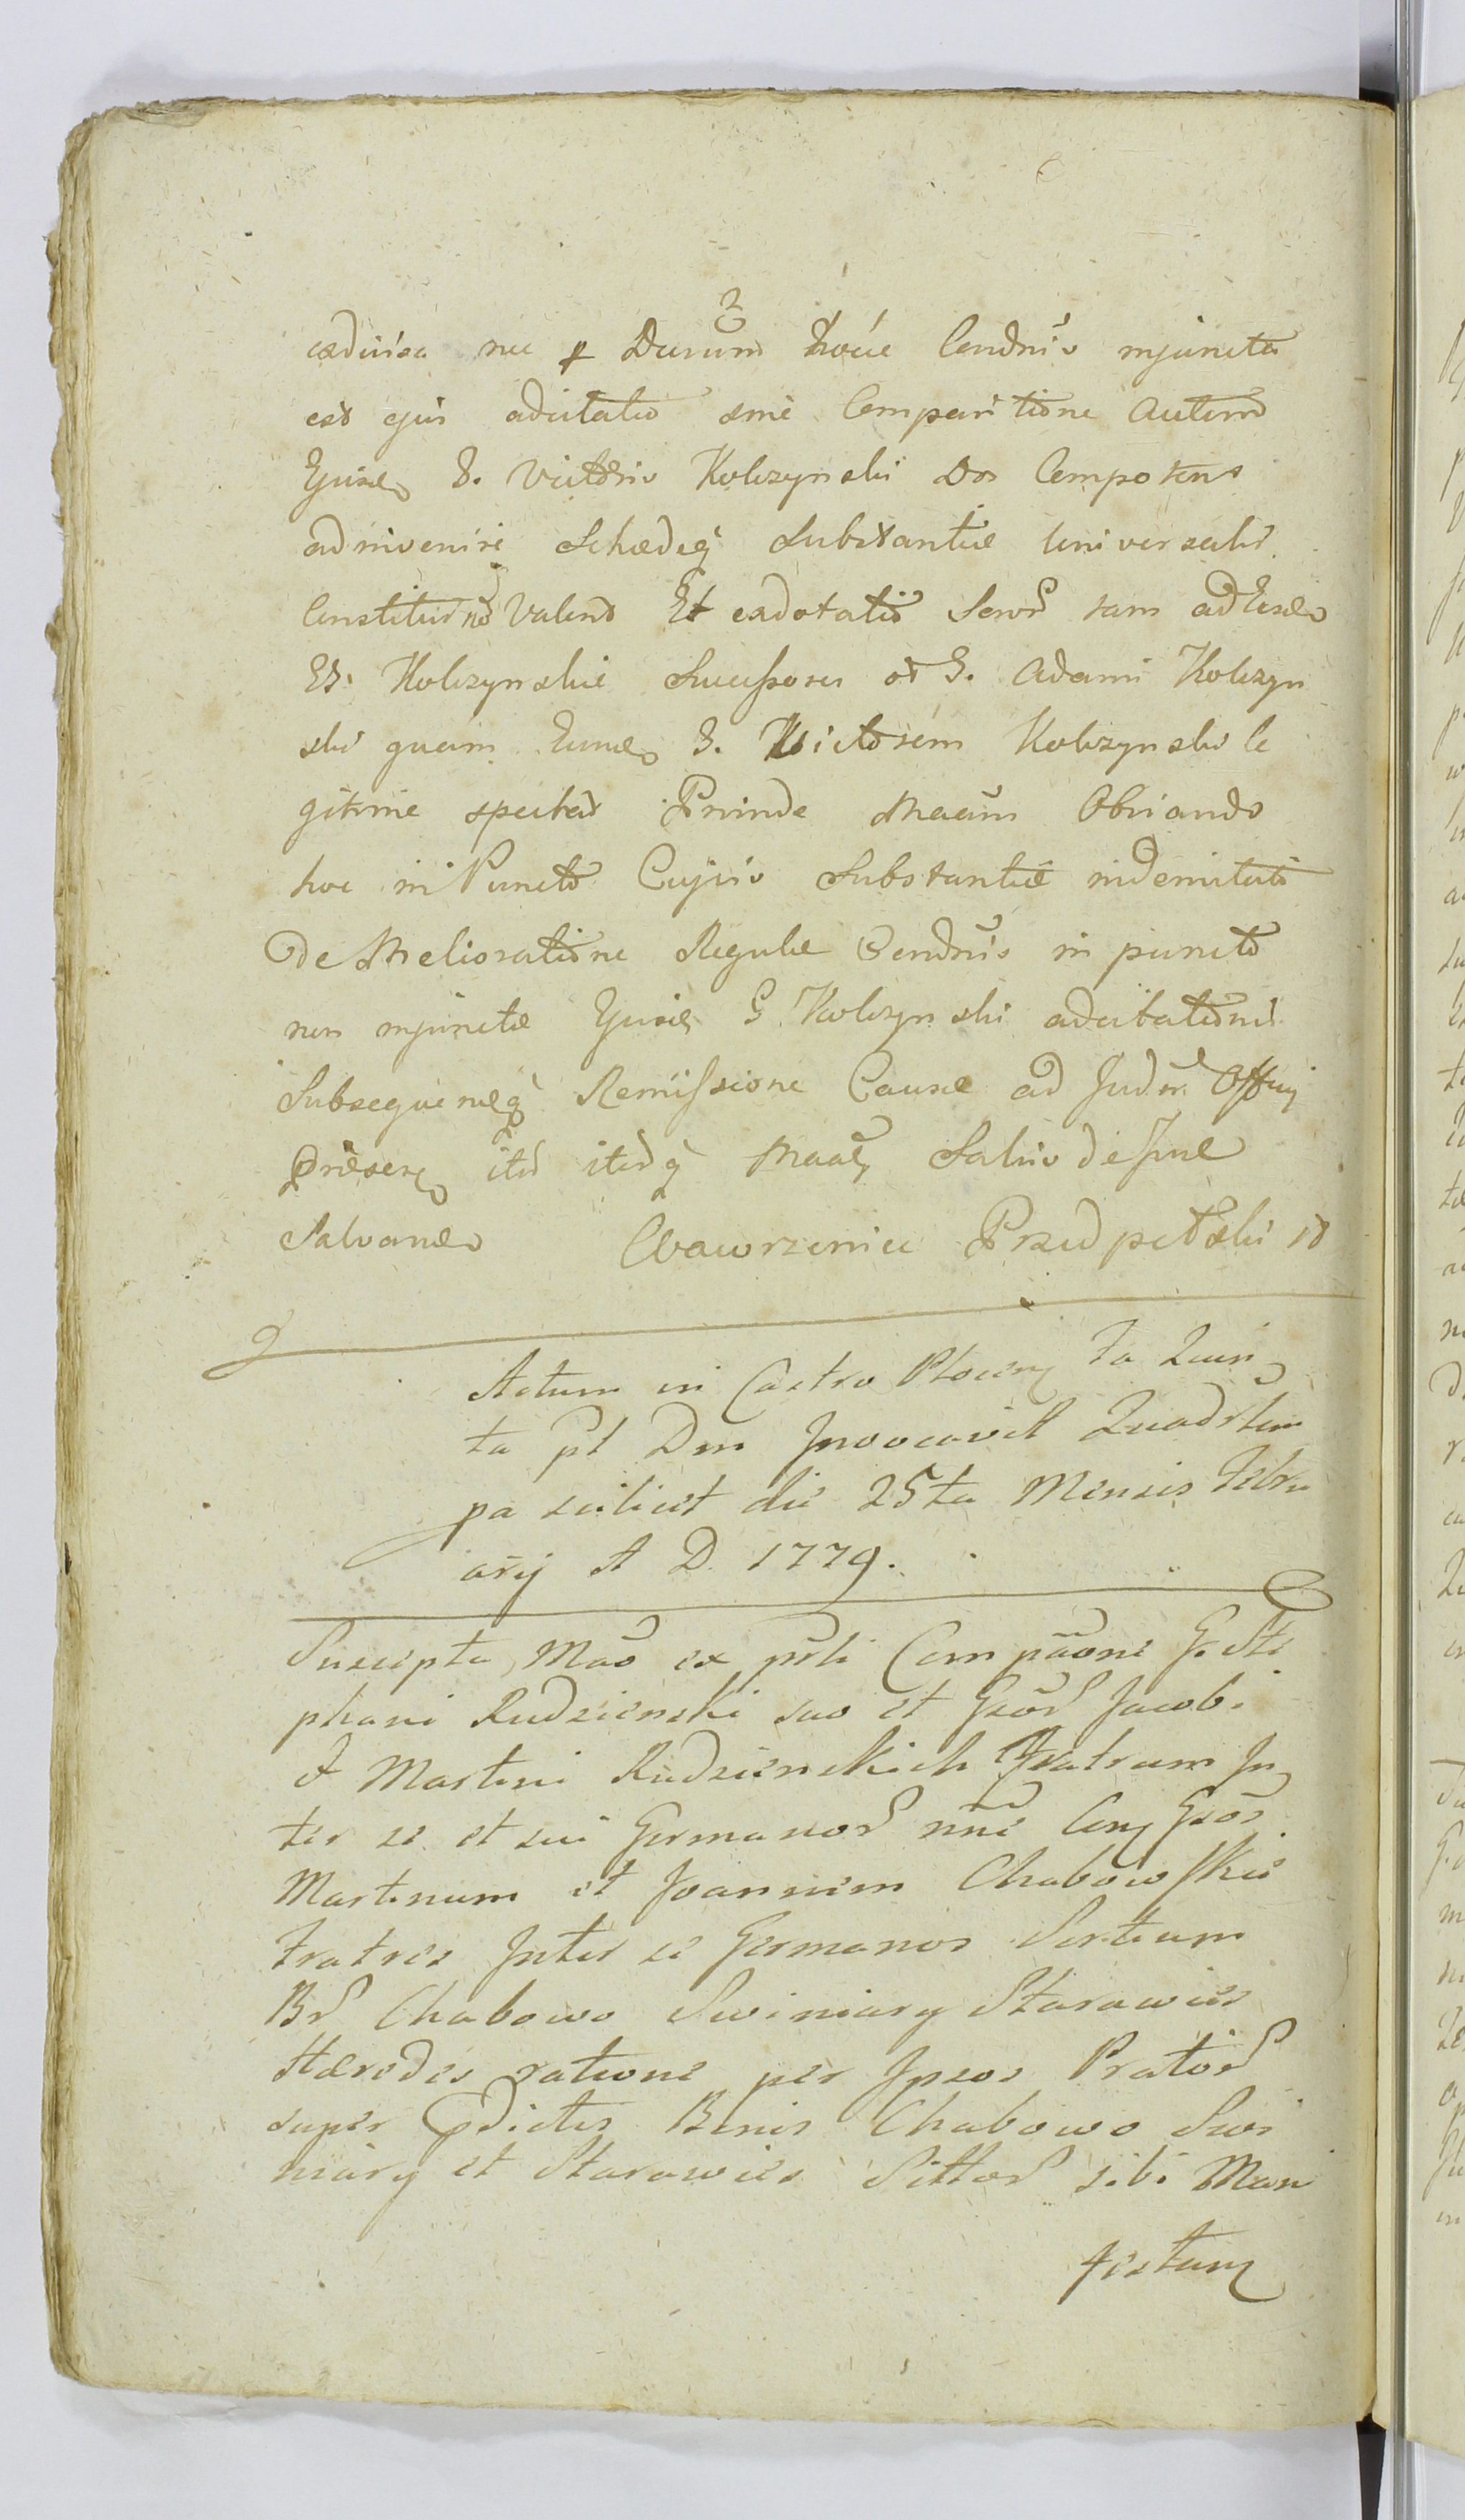 nec Ducum Condnis injuncta
est ejus adcitatio sine Comparitione autem
Ejusd G. Victoris Kobrzynski Dos Competens
adinveniri Schedeq Substantiæ universalis
Constituend valens Et exdotatio Soror tam ad Eosd
GG. Kobrzynskie Successores ol G. Adami Kobrzyn
ski quam Eumd G. Victorem Kobrzynski le
gitime spectat Proinde Maam Obviando
hoc in Puncto Cujus Substantiæ indemnitati
De Melioratione Regulæ Condnis in puncto
non injunctæ Ejusd G. Kobrzynski adcitationis
Subsequendq Remissione Causæ ad Judm Offij
præsens itd itdq Maae Salvis de Jure
Salvand Wawrzeniec
Actum in Castro Plocen Fa Quin
ta pt Dnm Invocavit Quadrlem
pa scilicet die 25ta Mensis Febru
arij A D. 1779.
Suscepta Mão ex psli Compãone G. Ste
phani Rudzienski suo et Gsor Jacobi
& Martini Rudzienskich Fratrum In
ter se et sui Germanor nne Con Gsos
Martinum et Joannem Chabowskie
Fratres Inter se Germanos Sortium
Br Chabowo Swiniary Starawies
Hæredes ratione per Ipsos Prator
super Pdictis Bonis Chabowo Swi
niary et Starawies Sittor sibi Mani
festum